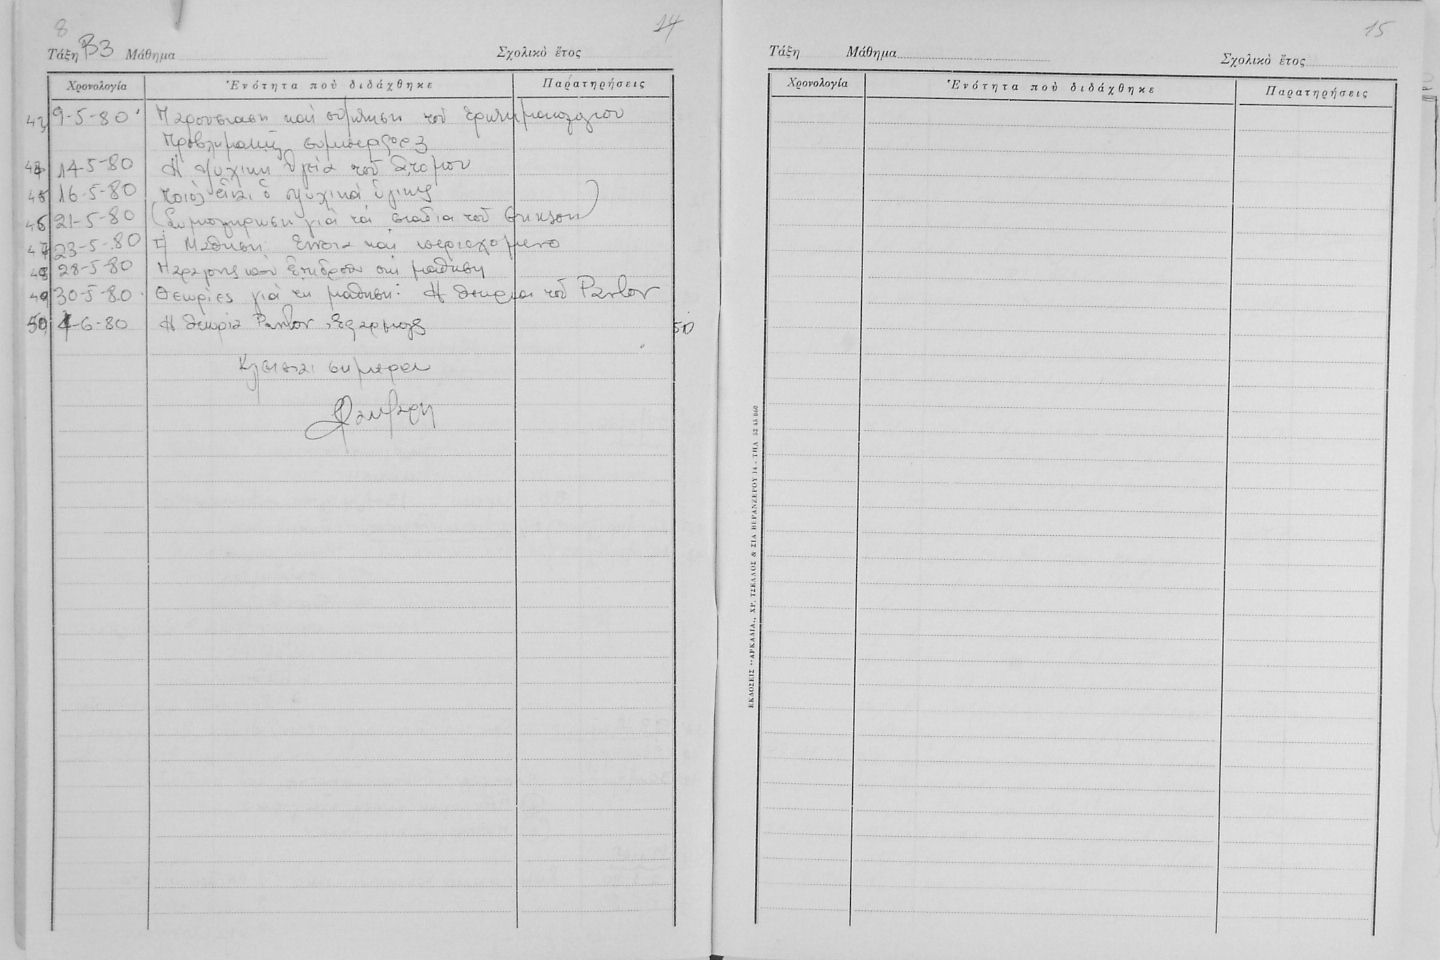 8
14
Τάξη Β3 Μάθημα
Σχολικὸ ἔτος
Χρονολογία Ἑνότητα ποὺ διδάχθηκε Παρατηρήσεις
43 9-5-80 Παρουσίαση καὶ συζήτηση τοῦ ἐρωτηματολογίου
Προβληματικῆς συμπεριφορᾶς
44 14-5-80 Ἡ ψυχική ὑγεία τοῦ ἀτόμου
45 16-5-80 Ποιός εἶναι ὁ ψυχικά ὑγιής
46 21-5-80 (Συμπλήρωση γιά τά στάδια τοῦ Erikson)
47 23-5-80 Ἡ Μάθηση. Ἔννοια καί περιεχόμενο
48 28-5-80 Παράγοντες πού ἐπιδροῦν στή μάθηση
49 30-5-80 Θεωρίες γιά τη μάθηση: Ἡ θεωρία τοῦ Pavlov
50 4-6-80 Ἡ θεωρία Pavlov, ἐφαρμογές 50
Κλείεται σήμερα
15
Τάξη Μάθημα
Σχολικὸ ἔτος
Χρονολογία Ἑνότητα ποὺ διδάχθηκε Παρατηρήσεις
ΕΚΔΟΣΕΙΣ "ΑΡΚΑΔΙΑ,, ΧΡ. ΤΣΕΛΛΟΣ & ΣΙΑ ΒΕΡΑΝΖΕΡΟΥ 14 - ΤΗΛ.